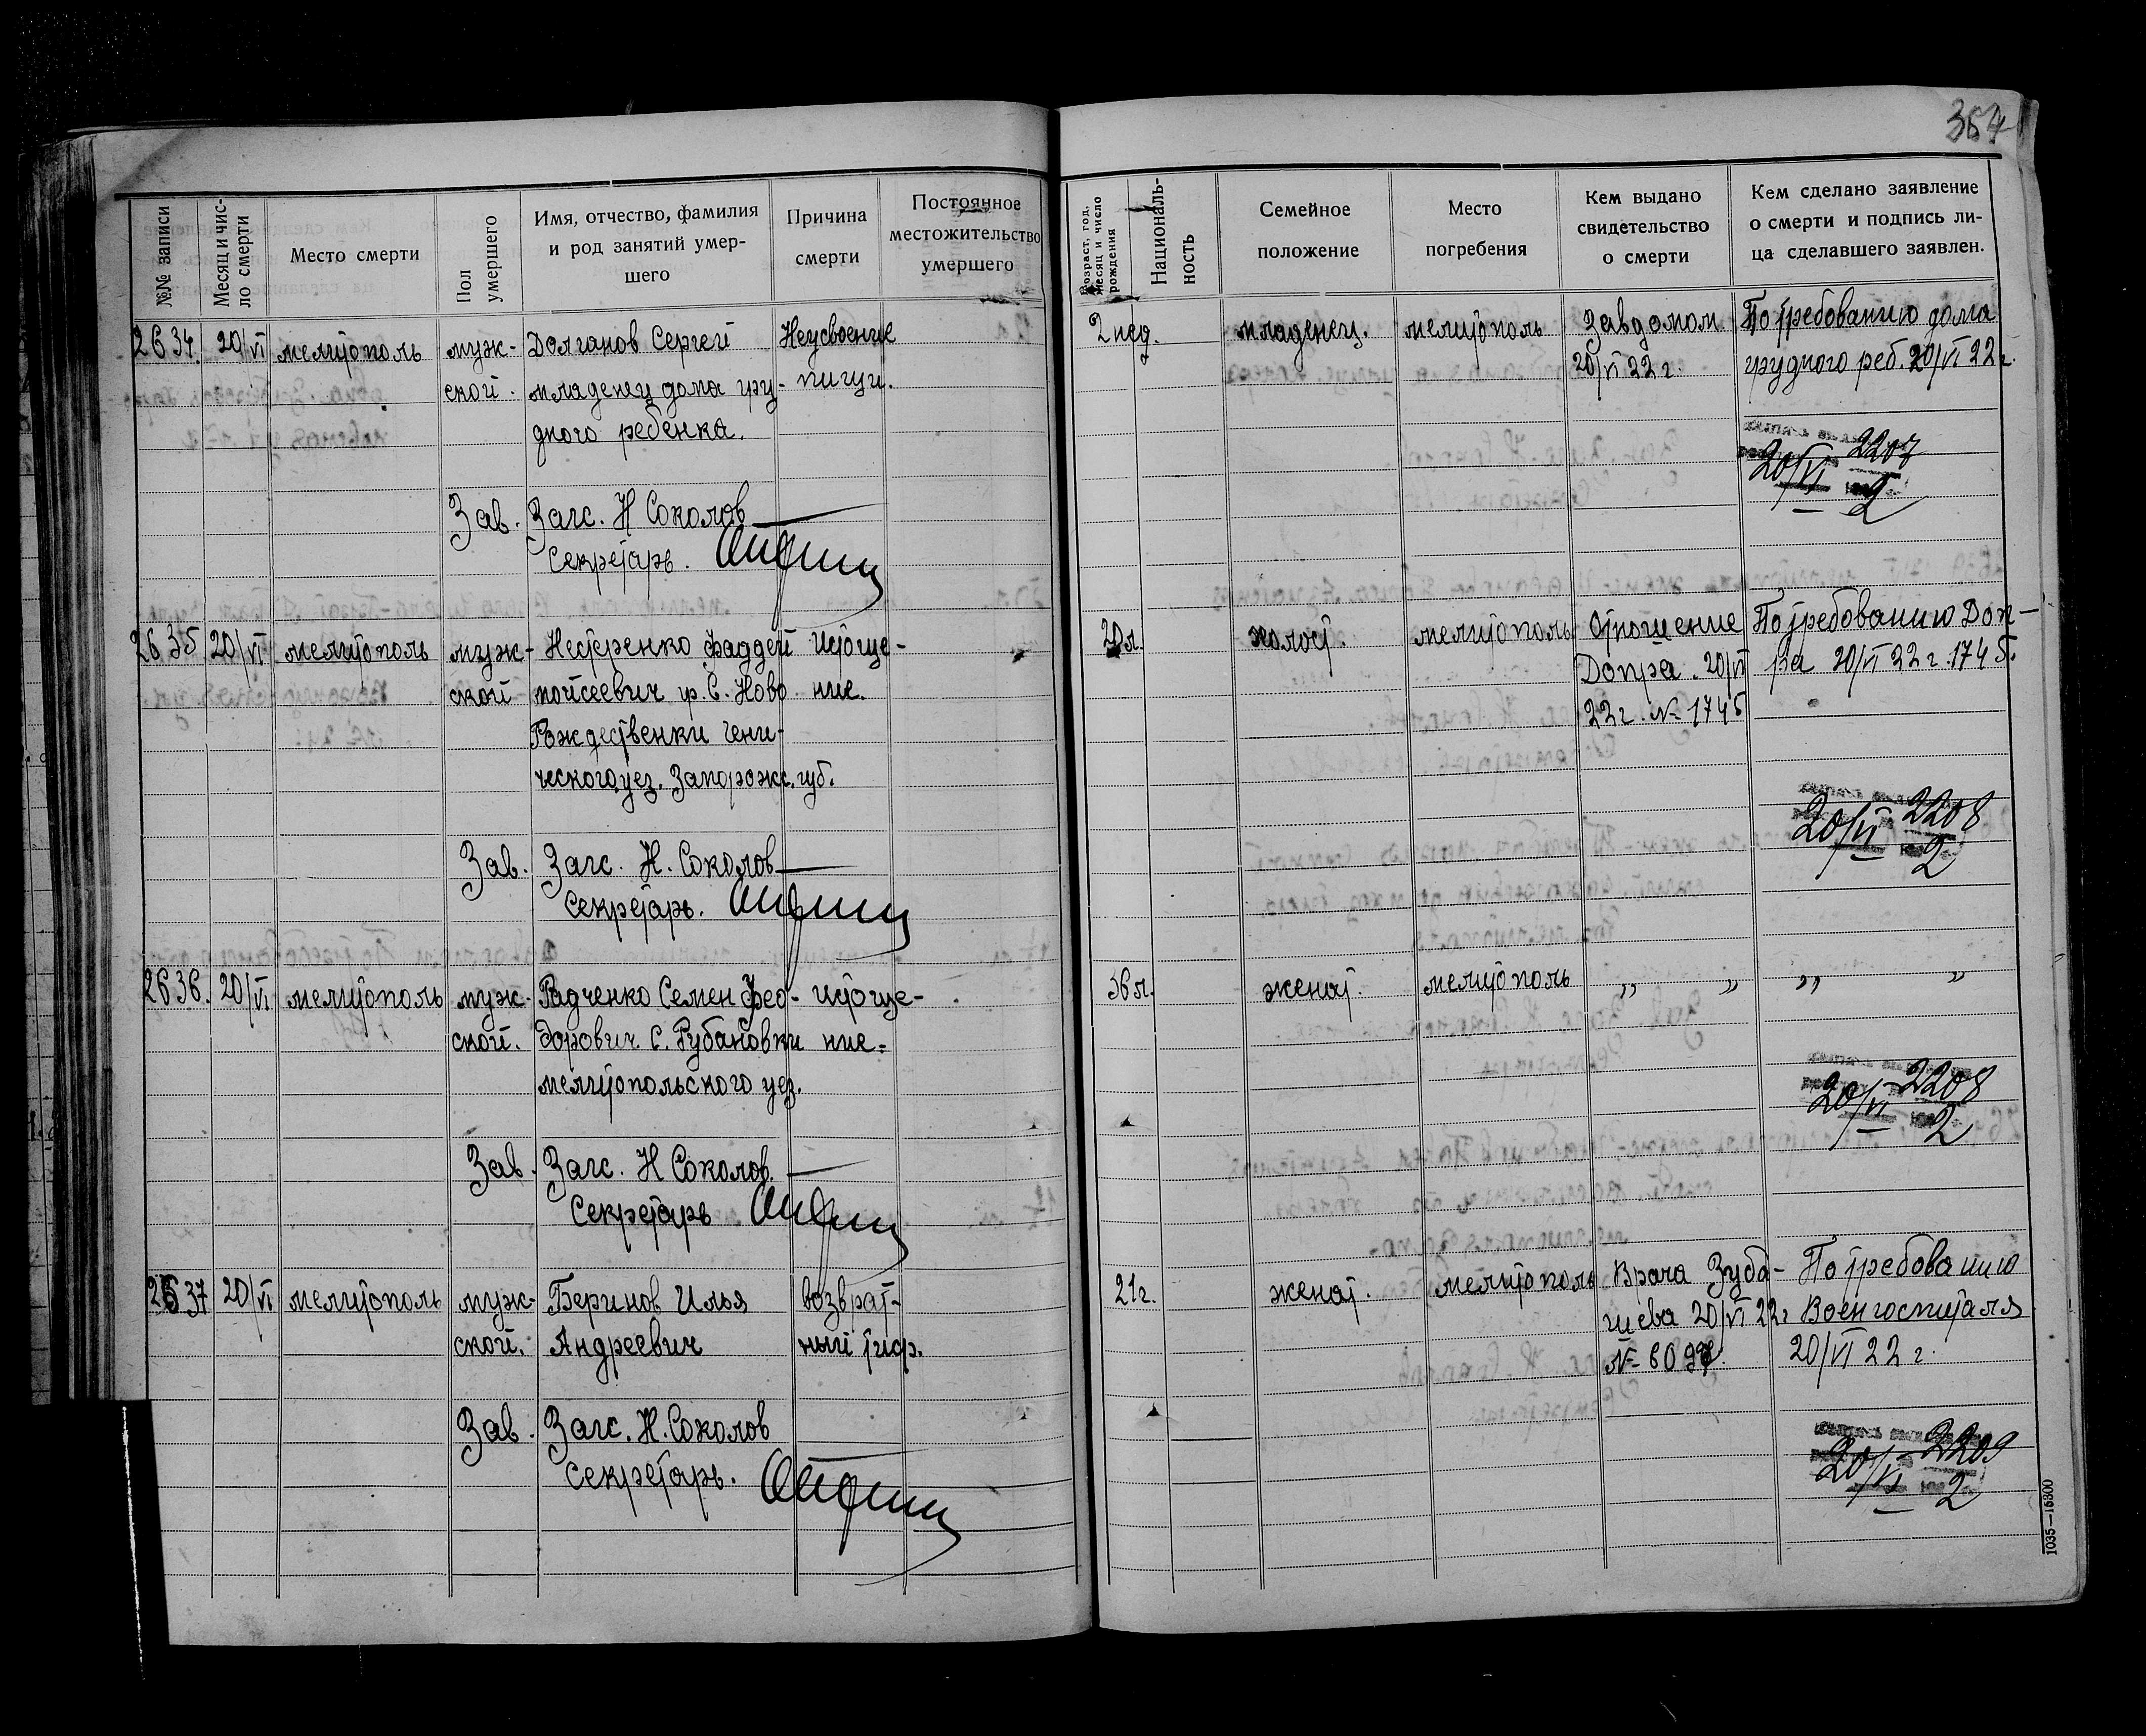 364
№№ записи
Месяц и чис-
ло смерти
Место смерти
Пол
умершего
Имя, отчество, фамилия
и род занятий умер-
шего
Причина
смерти
Постоянное
местожительство
умершего
Возраст, год,
месяц и число
рождения
Националь-
ность
Семейное
положение
Место
погребения
Кем выдано
свидетельство
о смерти
Кем сделано заявление
о смерти и подпись ли-
ца сделавшего заявлен.
2634. 20/VI мелитополь муж- Долганов Сергей Неусвоение 2 нед. младенец. мелитополь Завдомом По требованию дома
ской. младенец дома гру- пищи. 20/VI 22 г. грудного реб. 20/VI 22 г.
дного ребенка.
20/VI 2207
2
Зав. Загс. Н Соколов
Секретарь.
2635. 20/VI мелитополь муж- Нестеренко Фаддей истоще- 20 л. холост. мелитополь Отношение По требованию Доп-
ской мойсеевич гр. С. Ново ние. Допра. 20/VI ра 20/VI 22 г. 1745.
Рождественки Гени- 22 г. № 1745
ческого уез. Запорожс. губ.
20/VI 2208
2
Зав. Загс. Н. Соколов
Секретарь.
2636. 20/VI мелитополь муж- Радченко Семен Фео- истоще- 36 л. женат. мелитополь „ „ „ „
ской. дорович С. Рубановки ние.
мелитопольского уез.
20/VI 2208
2
Зав. Загс. Н Соколов.
Секретарь
2637 20/VI мелитополь муж- Беринов Илья возврат- 21 г. женат. мелитополь Врача Зуба- По требованию
ской. Андреевич ный тиф. шева 20/VI 22 г Военгоспиталя
№ 6097. 20/VI 22 г.
20/VI 2209
2
Зав. Загс. Н. Соколов
Секретарь.
1035—15300